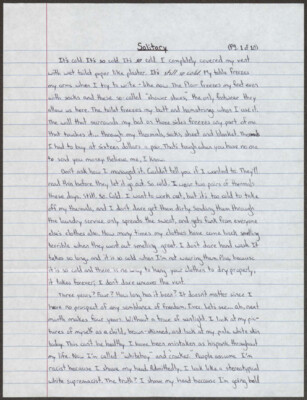 Solitary (pg. 1 of
It's cold. It's so cold. It's so cold. I completely covered my vent
with wet toilet paper like plaster. It's still so cold! My table freezes
my arms when I try to write - like now. The floor freezes my feet even
with socks and these so called "shower shoes" the only footwear they
allow us here. The toilet freezes my butt and hamstrings when I use it.
The wall that surrounds my bed on three sides freezes any part of me
that touches it... through my thermals, socks, sheet and blanket
I had to buy at sixteen dollars a pair. That's tough when you have no one
to send you money. Believe me, I know.
Don't ask how I managed it. Couldn't tell you if I wanted to. They'll
read this before they let it go out. So cold. I wear two pairs of thermals
these days. Still. So. Cold. I want to work out, but it's too cold to take
off my thermals, and I don't dare get them dirty. Sending them through
the laundry service only spreads the sweat, and gets funk from everyone
else's clothes else. How many times my clothes have come back smelling
terrible when they went out smelling great. I don't dare hand wash. It
takes so long, and it is so cold when I'm not wearing them. Plus, because
it is so cold and there is no way to hang your clothes to dry properly,
it takes forever; I don't dare remove the vent.
Three years? Four? How long has it been? It doesn't matter since I
have no prospect of any semblance of freedom. Ever. Let's see... oh, next
month makes four years. Without a touch of sunlight. I look at my pic-
tures of myself as a child, brown-skinned, and look at my pale white skin
today. This can't be healthy. I have been mistaken as hispanic throughout
my life. Now I'm called "whiteboy" and "cracker." People assume I'm
racist because I shave my head. Admittedly, I look like a stereotypical
white supremacist. The truth? I shave my head because I'm going bald